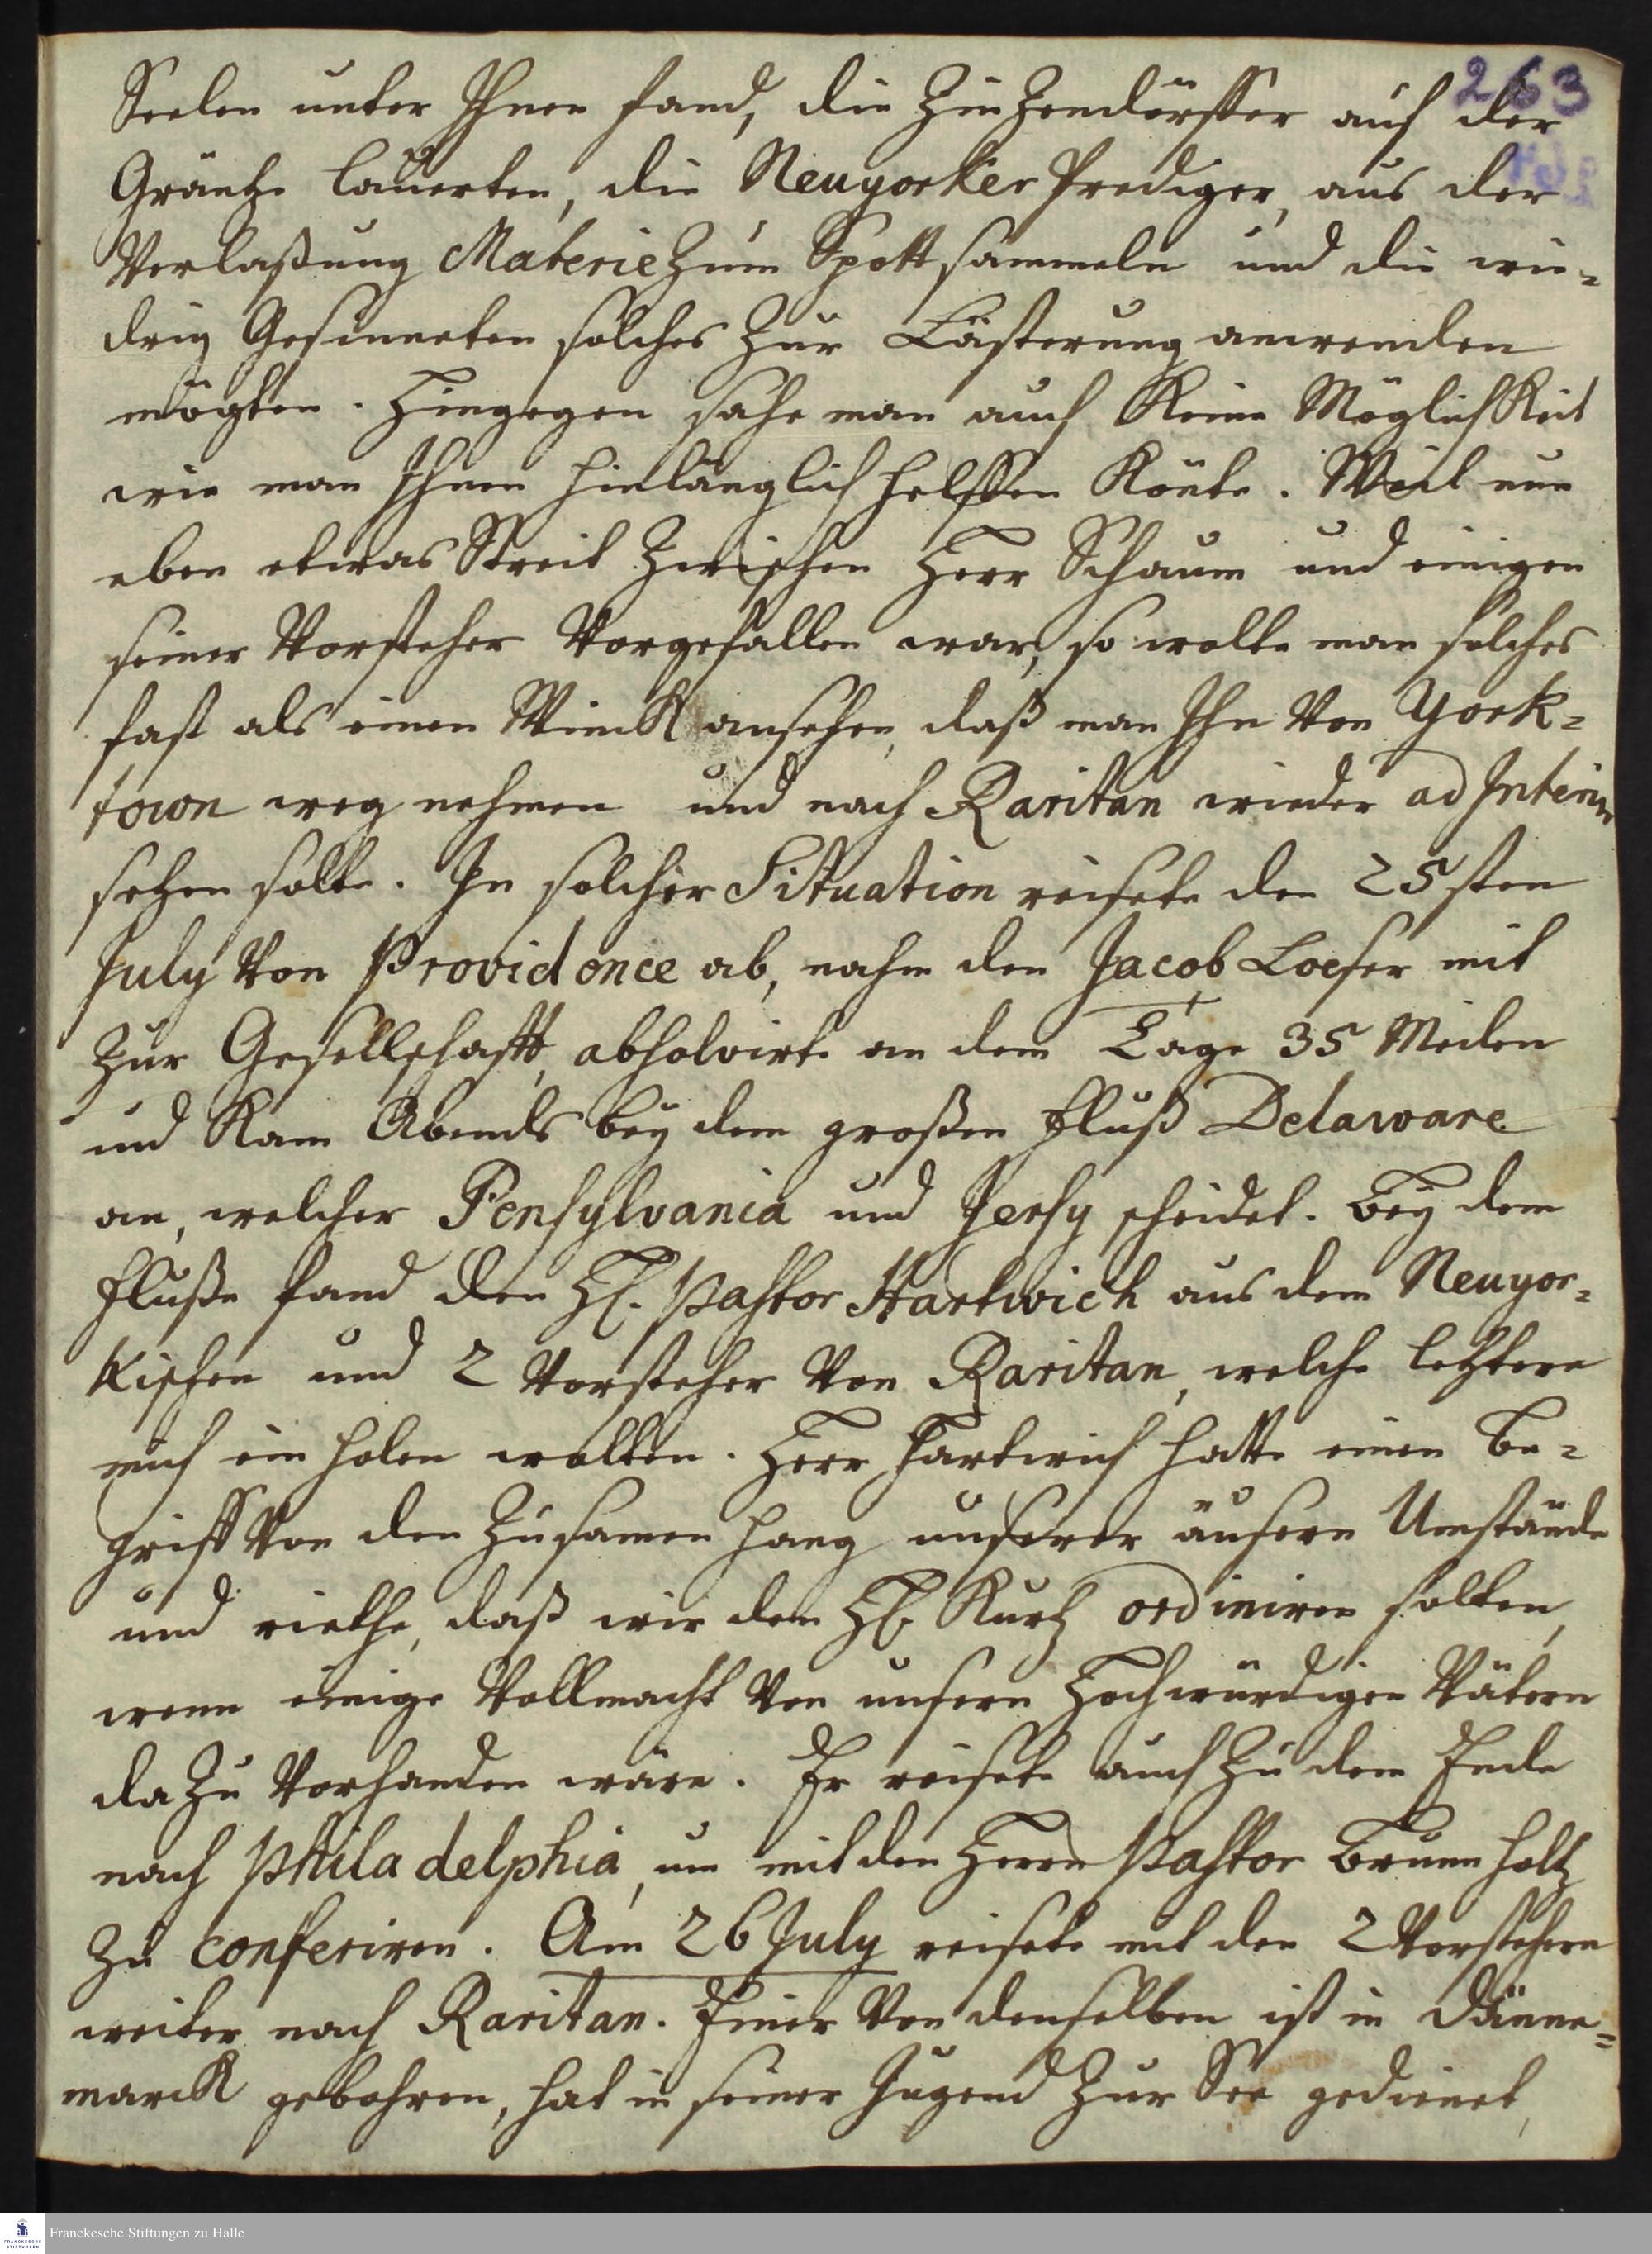 263
Seelen unter Ihnen fand, die Zinzendörffer auf der
Gräntze laüerten, die Neuyorker Prediger, aus der
Verlaßung Materie zum Spott sammeln und die wie-
drig Gesinneten solches zur Lästerung anwenden
mögten. Hingegen sahe man auch keine Möglichkeit
wie man Ihnen hinlänglich helffen könte. Weil nun
eben etwas Streit zwischen Herr Schaum und einigen
seiner Vorsteher vorgefallen war, so wolte man solches
fast als einen Winck ansehen, daß man Ihn von York-
town weg nehmen und nach Raritan wieder ad Interim
setzen solte. In solcher Situation reisete den 25sten
July von Providence ab, nahm den Jacob Loeser mit
zur Gesellschafft, absolvirte an dem Tage 35 Meilen
und kam Abends bey dem großen Fluß Delaware
an, welcher Pensylvania und Jersy scheidet. Bey dem
Fluße fand den H. Pastor Hartwich aus dem Neuyor-
kischen und 2 Vorsteher von Raritan, welche letztere
mich ein holen wolten. Herr Hartwich hatte einen Be-
griff von den Zusamen hang unserer äusern Umstände
und riethe, daß wir den H. Kurtz ordiniren solten,
wenn einige Vollmacht von unsern Hochwürdigen Vätern
dazu vorhanden wäre. Er reisete auch zu dem Ende
nach Philadelphia, um mit den Herrn Pastor Brunnholtz
zu conferiren. Am 26 July reisete mit den 2 Vorstehern
weiter nach Raritan. Einer von denselben ist in Dänne-
marck gebohren, hat in seiner Jugend zur See gedienet,
Franckesche Stiftungen zu Halle